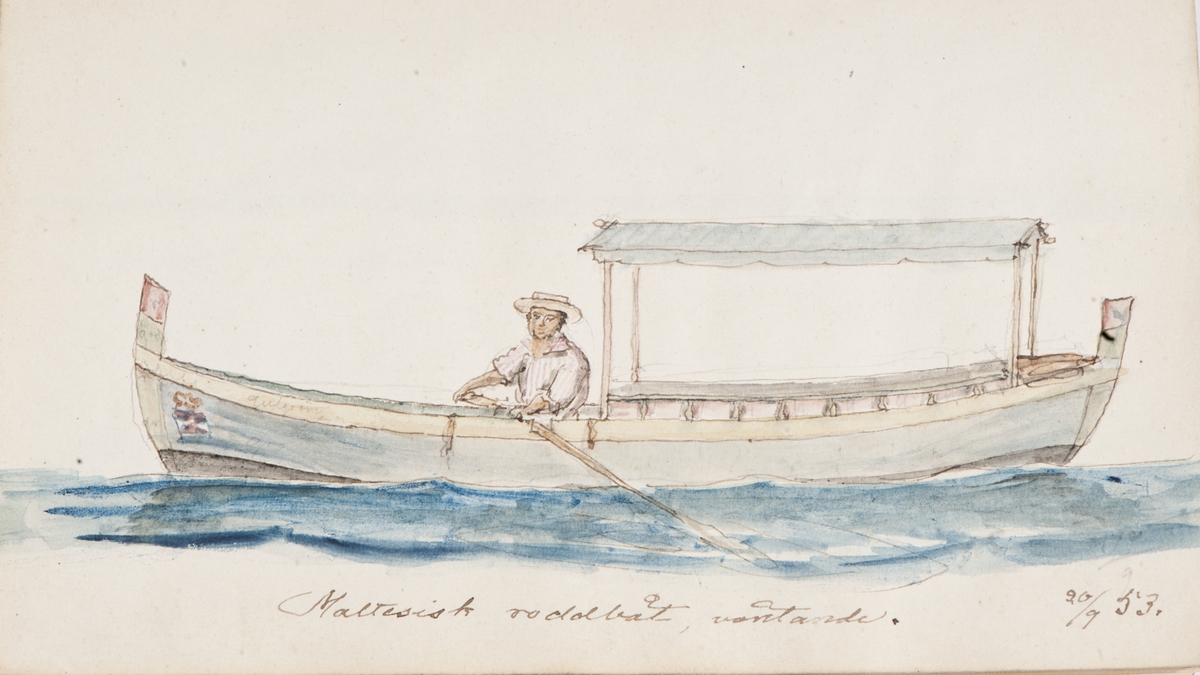 Maltesisk roddbåt, väntande.
20/9 53.